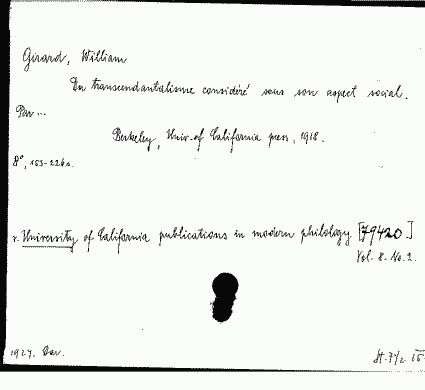 Girard, William
Du transcendantalisme considéré sous son aspect social.
Par...
Berkeley, Univ. of California press, 1918.
8°, 153-226 s.
v. University of California publications in modern philology [79420.]
Vol. 8. No. 2.
1927.